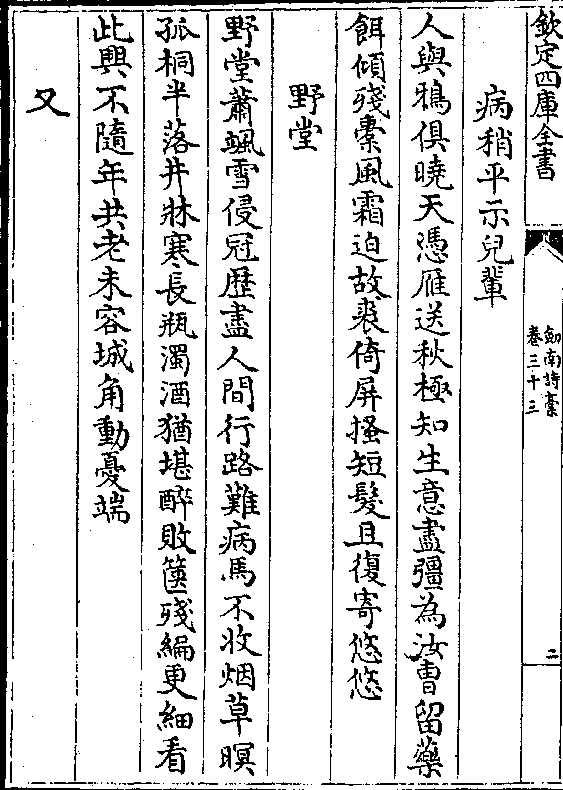 欽定四庫全書
劍南詩稾
卷三十三
二
病稍平示兒輩
人與鴉俱曉天憑雁送秋極知生意盡彊為汝曹留藥
餌傾殘橐風霜迫故裘倚屏搔短髮且復寄悠悠
野堂
野堂蕭颯雪侵冠歴盡人間行路難病馬不收烟草暝
孤桐半落井牀寒長瓶濁酒猶堪醉敗篋殘編更細看
此興不隨年共老未容城角動憂端
又